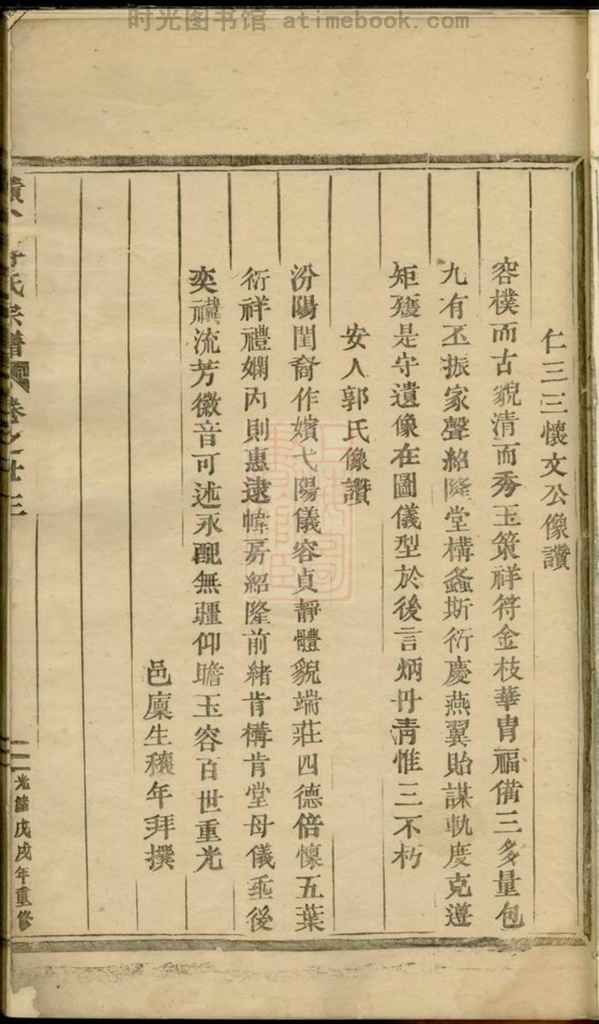 时光图书馆 atimebook.com
仁三三懷文公像讚
容樸而古貌清而秀玉策祥符金枝華胄福備三多量包
九有丕振家聲紹隆堂構螽斯衍慶燕翼貽謀軌度克遵
矩矱是守遺像在圖儀型於後言炳丹靑惟三不朽
安人郭氏像讚
汾陽閨裔作嬪弋陽儀容貞靜體貌端莊四德倍懍五葉
衍祥禮嫻內則惠逮幃房紹隆前緒肯構肯堂母儀垂後
奕禩流芳徽音可述永配無疆仰瞻玉容百世重光
邑廩生穰年拜撰
氏宗譜 卷之廿三
光緖戊戌年重修